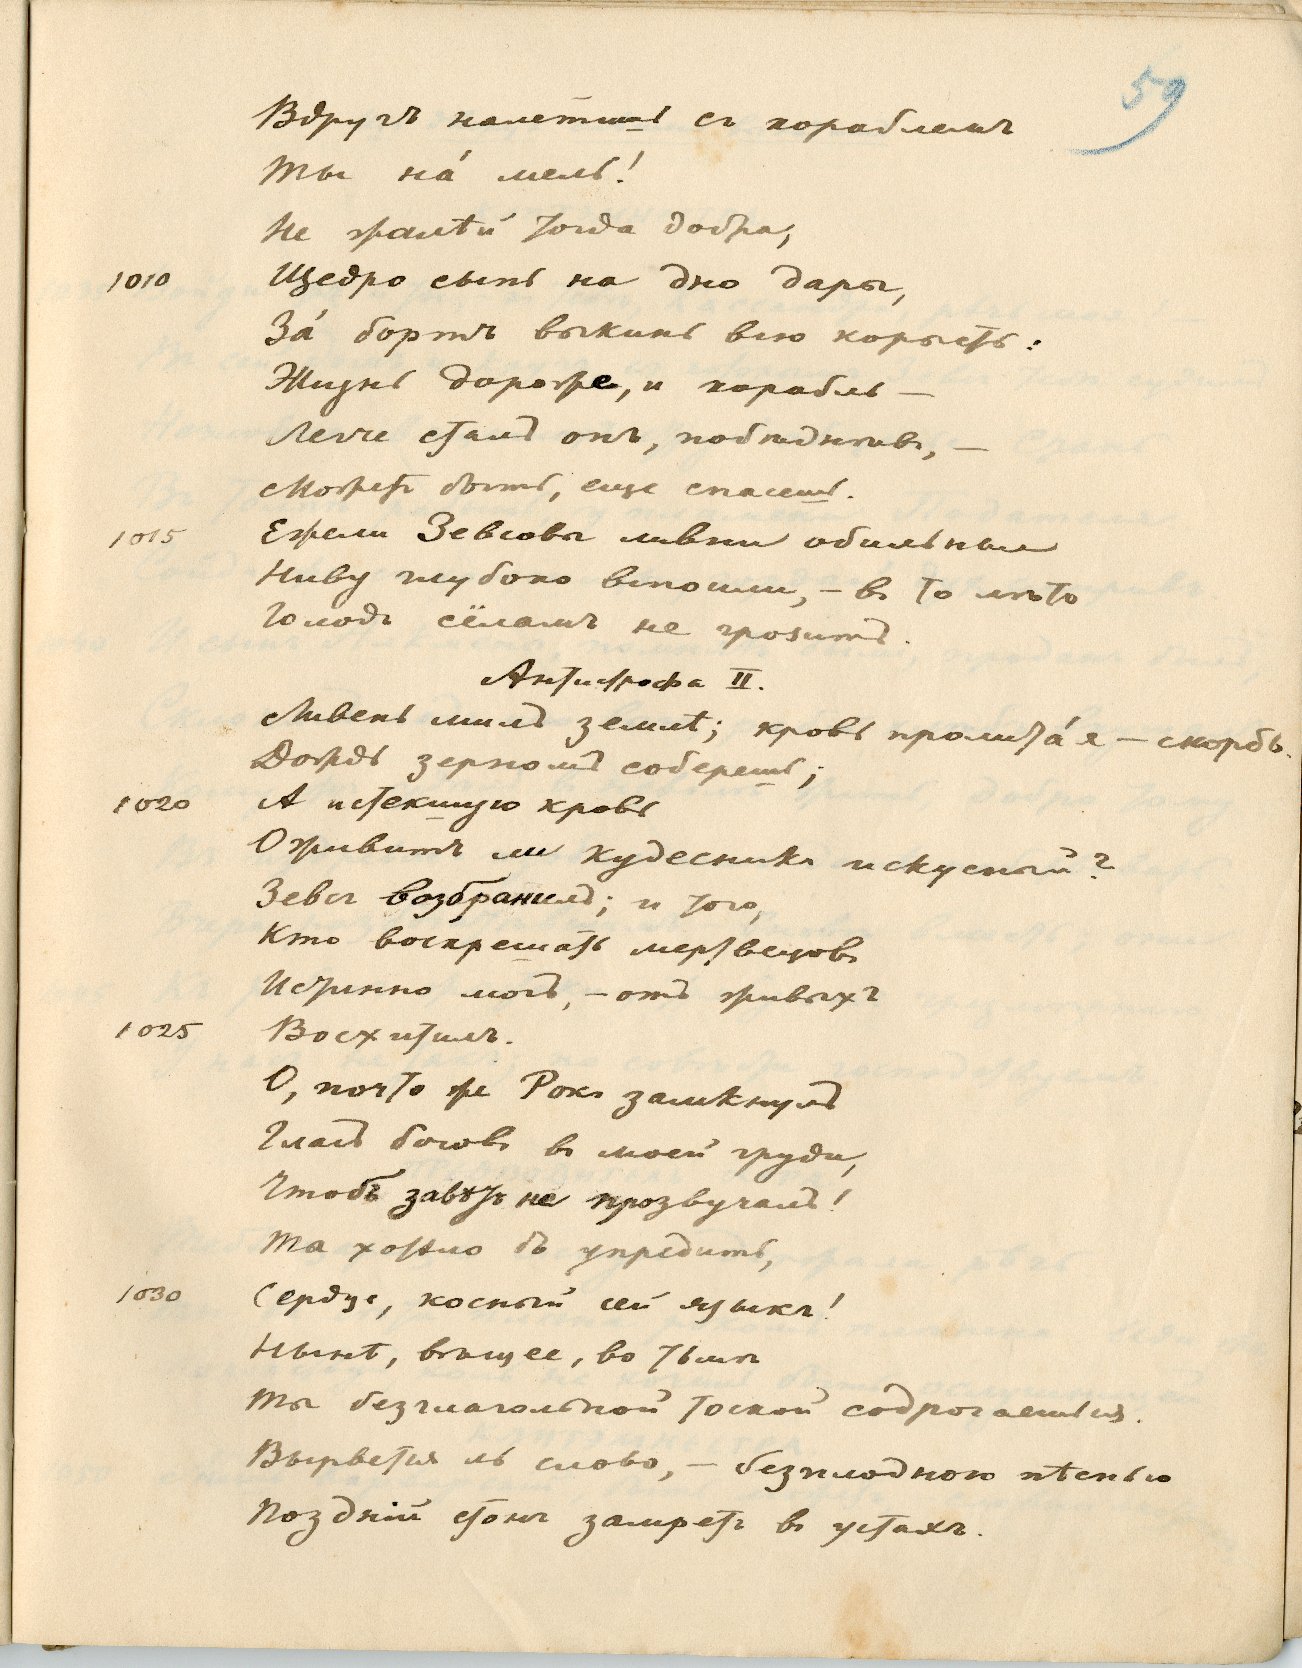 59
Вдругъ налетишь съ кораблемъ
Ты на́ мель!
Не жалѣй тогда добра,
1010 Щедро сыпь на дно дары,
За́ бортъ выкинь всю корысть:
Жизнь дороже, и корабль —
Легче сталъ онъ, побѣднѣвъ, —
Можетъ быть, еще спасешь.
1015 Ежели Зевсовы ливни обильные
Ниву глубоко вспоили, — въ то лѣто
Голодъ сёламъ не грозитъ.
Антистрофа II.
Ливень милъ землѣ; кровь проли́тая — скорбь.
Дождь зерномъ соберешь;
1020 А истекшую кровь
Оживитъ ли кудесникъ искусный?
Зевсъ возбранилъ; и того,
Кто воскрешать мертвецовъ
Истинно могъ, — отъ живыхъ
1025 Восхитилъ.
О, почто же Рокъ замкнулъ
Гласъ боговъ въ моей груди,
Чтобъ завѣтъ не прозвучалъ!
Та хотѣло бъ упредить,
1030 Сердце, косный сей языкъ!
Нынѣ, вѣщее, во тьмѣ
Ты безглагольной тоской содрогаешься.
Вырвется ль слово, — безплодною пѣснью
Поздній стонъ замретъ въ устахъ.